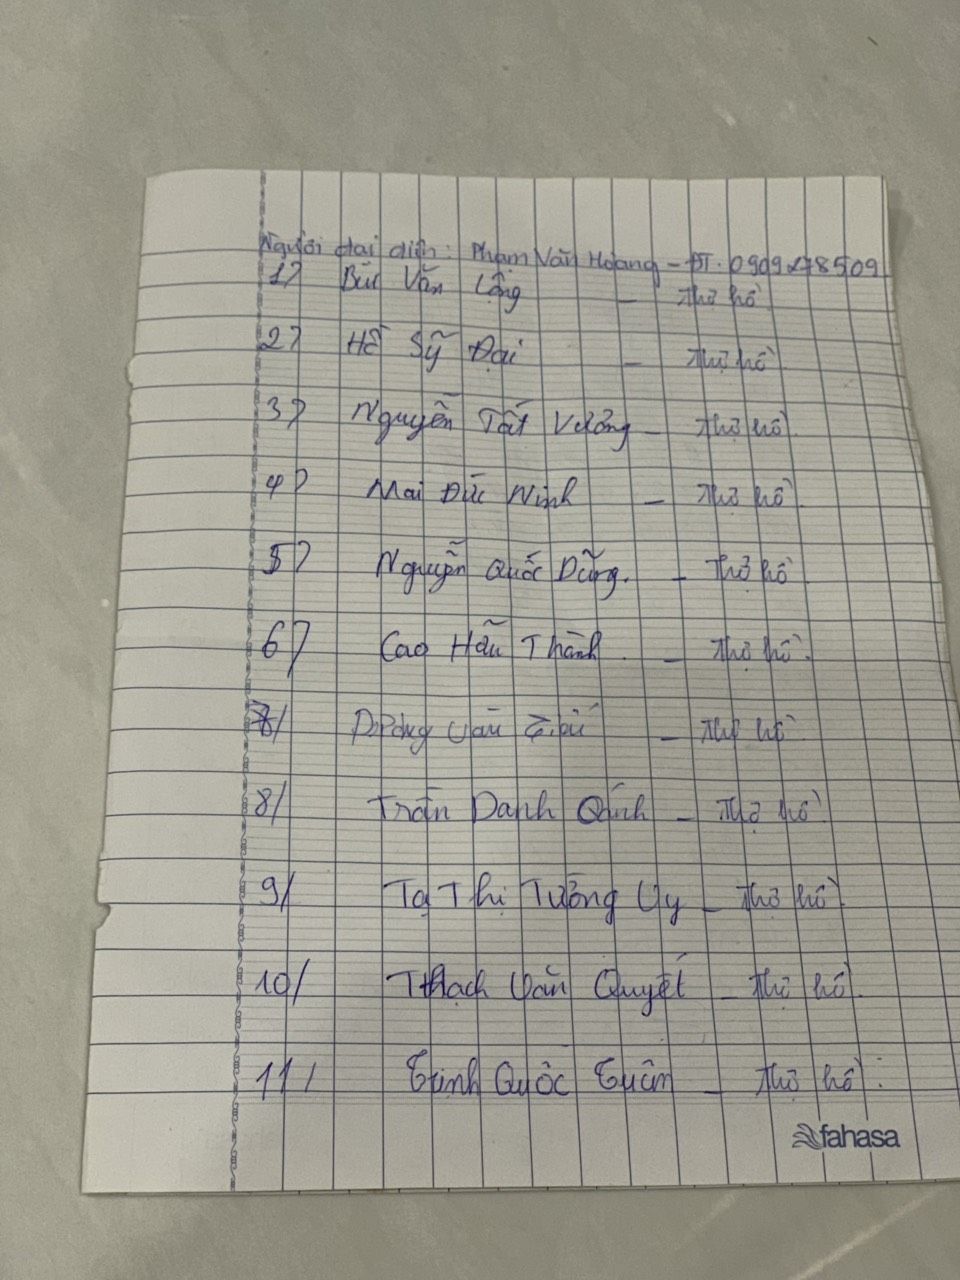 Người đại diện: Phạm Văn Hoàng - ĐT. 0909278509
1) Bùi Văn Công - Thợ hồ
2) Hồ Sỹ Đại - Thợ hồ
3) Nguyễn Tất Vương - Thợ hồ.
4) Mai Đức Ninh - Thợ hồ.
5) Nguyễn Quốc Dũng. - Thợ hồ
6) Cao Hữu Thành. - Thợ hồ.
7/ Dương Văn - Thợ hồ
8/ Trần Danh - Thợ hồ.
9/ Tạ Thị Tường Uy - Thợ hồ.
10/ Thạch Văn Quyết - Thợ hồ.
11/ Trịnh Quốc Tuấn - Thợ hồ.
fahasa